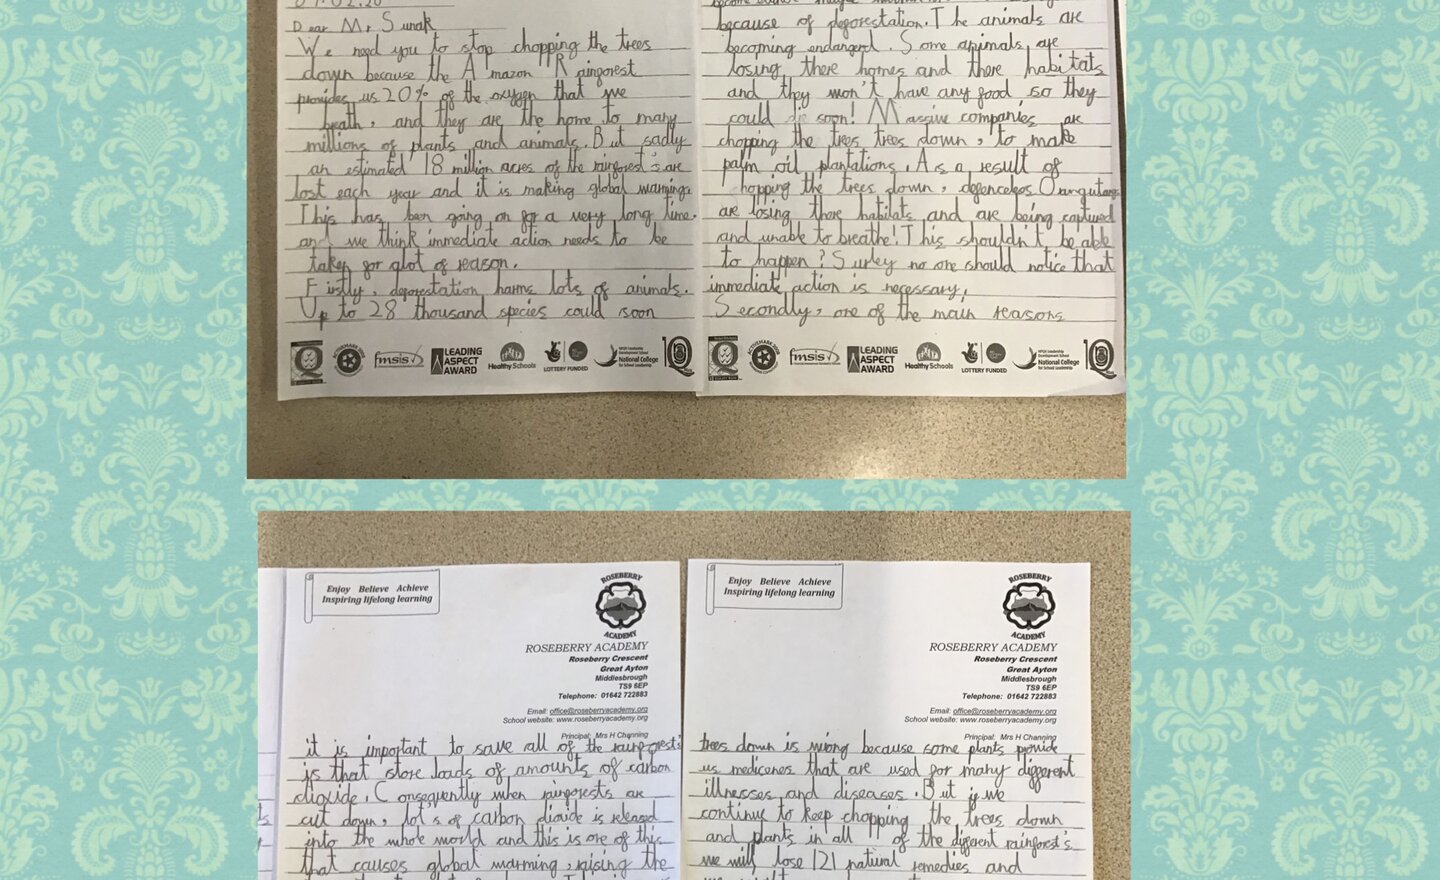 Dear Mr Sunak
We need you to stop chopping the trees
down because the Amazon Rainforest
provides us 20% of the oxygen that we
breath, and they are the home to many
millions of plants and animals. But sadly
an estimated 18 million acres of the rainforest's are
lost each year and it is making global warming.
This has been going on for a very long time.
and we think immediate action needs to be
taken for alot of reason.
Firstly, deforestation harms lots of animals.
Up to 28 thousand species could soon
LEADING
ASPECT
AWARD
fmsis
Healthy Schools
LOTTERY FUNDED
National College
for School Leadership
because of deforestation. The animals are
becoming endangerd. Some animals are
losing there homes and there habitats
and they won't have any food so they
could die soon! Massive companies are
chopping the trees trees down, to make
palm oil plantations. As a result of
hopping the trees down, defenceless Orangutans
are losing there habitats and are being captured
and unable to breathe! This shouldn't be able
to happen? Surley no one should notice that
immediate action is necessary.
Secondly, one of the main reasons
fmsis
LEADING
ASPECT
AWARD
Healthy Schools
LOTTERY FUNDED
National College
for School Leadership
Enjoy Believe Achieve
Inspiring lifelong learning
ROSEBERRY
ACADEMY
ROSEBERRY ACADEMY
Roseberry Crescent
Great Ayton
Middlesbrough
TS9 6EP
Telephone: 01642 722883
Email: office@roseberryacademy.org
School website: www.roseberryacademy.org
Principal: Mrs H Channing
it is important to save all of the rainforest's
is that store loads of amounts of carbon
dioxide. Consequently when rainforests are
cut down, lot's of carbon dioxide is released
into the whole world and this is one of this
that causes global warming, raising the
Enjoy Believe Achieve
Inspiring lifelong learning
ROSEBERRY
ACADEMY
ROSEBERRY ACADEMY
Roseberry Crescent
Great Ayton
Middlesbrough
TS9 6EP
Telephone: 01642 722883
Email: office@roseberryacademy.org
School website: www.roseberryacademy.org
Principal: Mrs H Channing
trees down is wrong because some plants provide
us medicenes that are used for many different
illnesses and diseases. But if we
continue to keep chopping the trees down
and plants in all of the different rainforest's
we will lose 121 natural remedies and